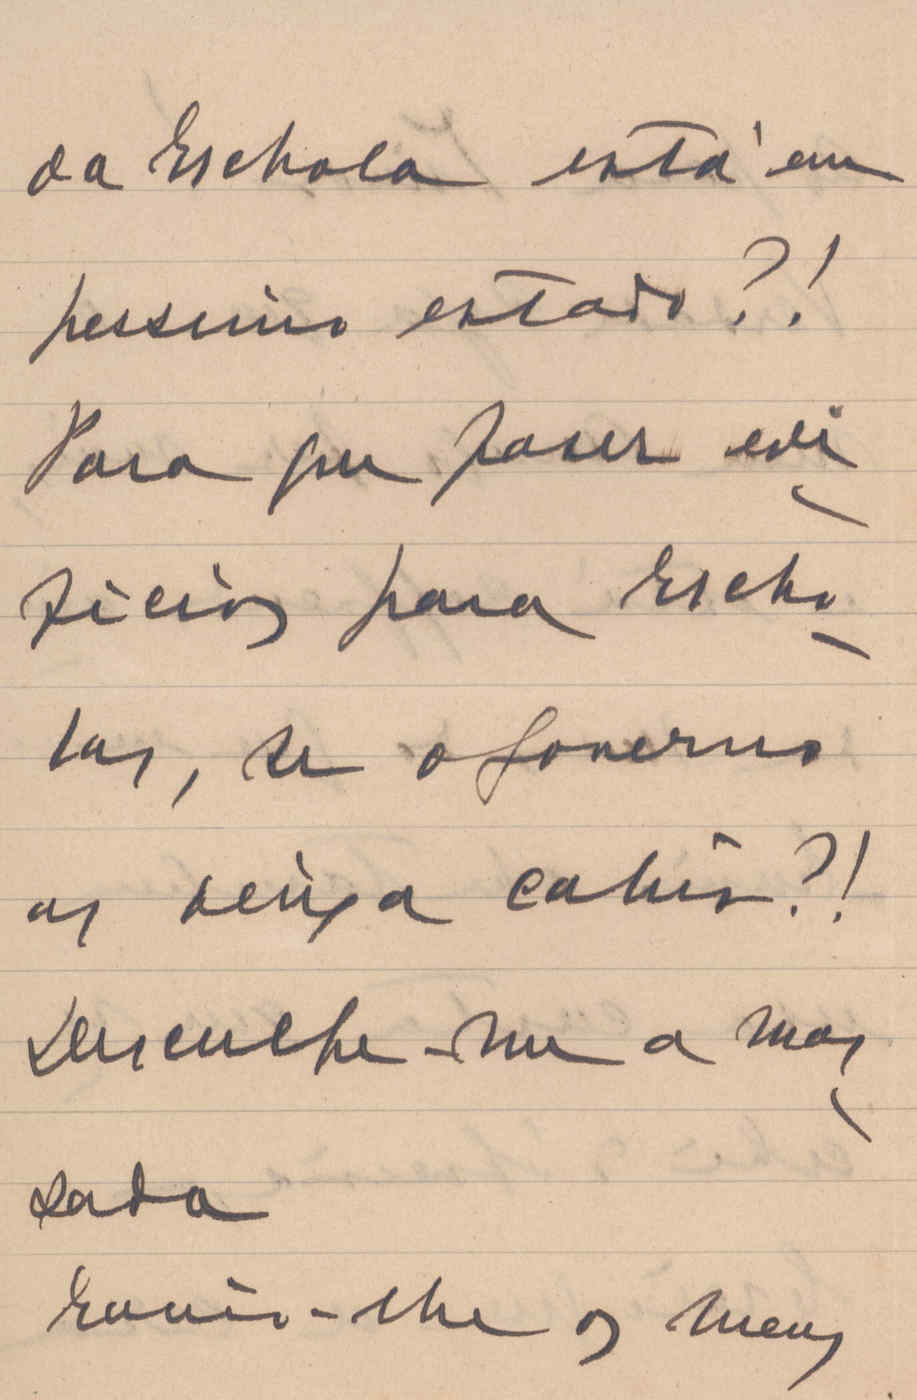 da Eschola está em
pessimo estado?!
Para que fazer edi
ficios para Escho
las, se o Governo
as deixa cahir?!
Desculpe-me a mas
sada
Envio-lhe os meus